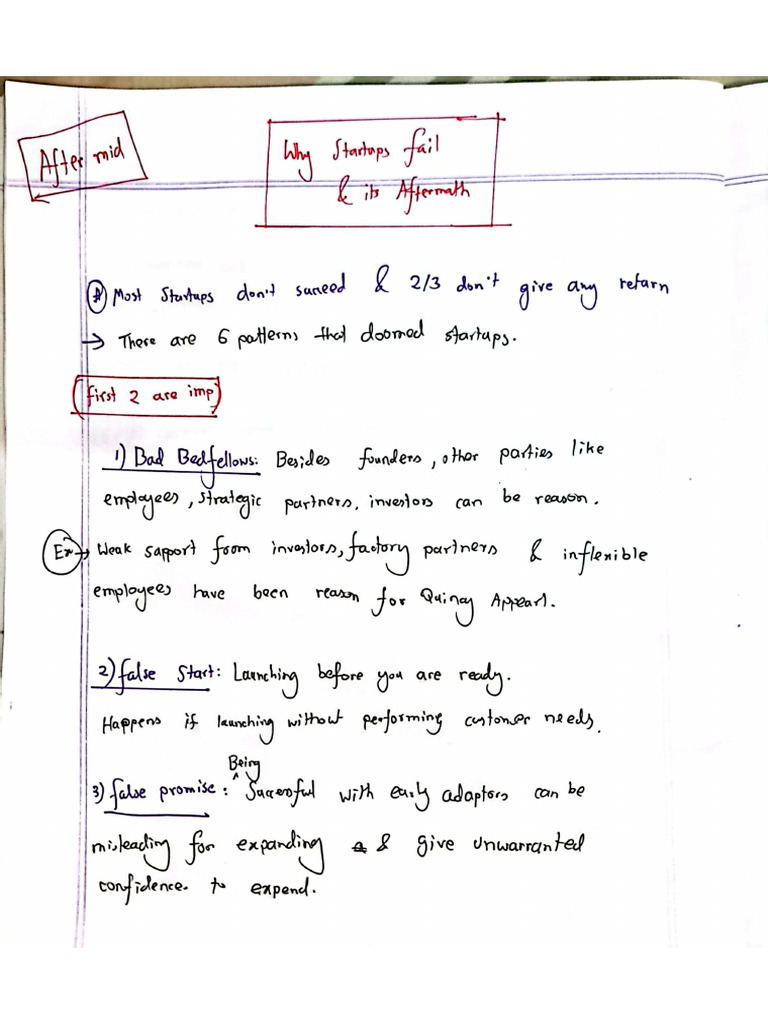 After mid
Why Startups fail
& its Aftermath
A Most Startups don't succeed & 2/3 don't give any return
→ There are 6 patterns that doomed startups.
(first 2 are imp)
1) Bad Bedfellows: Besides founders, other parties like
employees, strategic partners, investors can be reason.
Ex → Weak support from investors, factory partners & inflexible
employees have been reason for Quincy Appearl.
2) false Start: Launching before you are ready.
Happens if launching without performing customer needs.
Being
3) false promise: Successful with early adaptors can be
misleading for expanding & give unwarranted
confidence to expend.